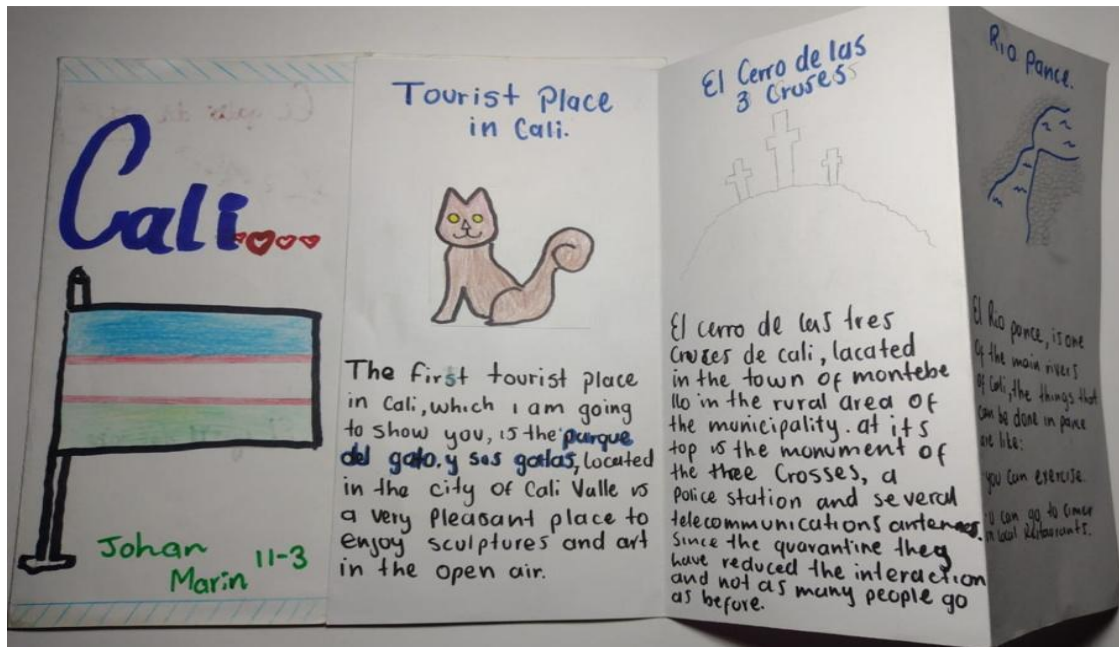 Cali
Johan
Marin 11-3
Tourist Place
in Cali.
The first tourist place
in Cali, which I am going
to show you, is the parque
del gato. y sos gatas, located
in the city of Cali Valle is
a very Pleasant place to
enjoy sculptures and art
in the open air.
El Cerro de las
3 Cruses
El cerro de las tres
Cruces de cali, lacated
in the town of montebe
llo in the rural area of
the municipality. at its
top is the monument of
the thee Crosses, a
Police station and several
telecommunications antennas.
Since the quarantine they
have reduced the interaction
and not as many people go
as before.
Rio Pance.
El Rio pance, is one
of the main rivers
of Cali, the things that
can be done in pance
are like:
you can exercise.
can go to
in local Restaurants.